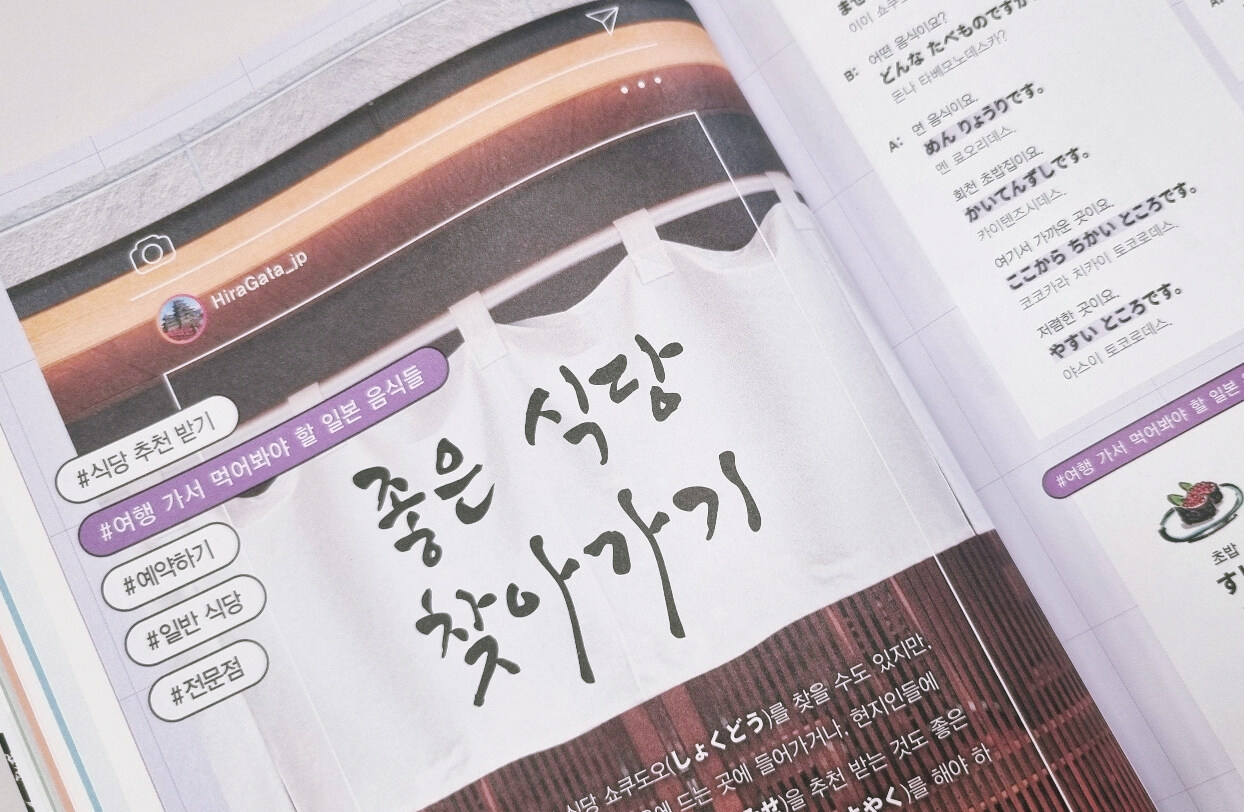 HiraGata_jp
#식당 추천 받기
#여행 가서 먹어봐야 할 일본 음식들
#예약하기
#일반 식당
#전문점
좋은 식당
찾아가기
식당 쇼쿠도오(しょくどう)를 찾을 수도 있지만,
에 드는 곳에 들어가거나, 현지인들에
을 추천 받는 것도 좋은
やく)를 해야 하
B: 어떤 음식이요?
どんな たべものですか
돈나 타베모노데스카?
A: 면 음식이요.
めん りょうりです。
멘 료오리데스.
회전 초밥집이요.
かいてんずしです。
카이텐즈시데스.
여기서 가까운 곳이요.
ここから ちかい ところです。
코코카라 치카이 토코로데스.
저렴한 곳이요.
やすい ところです。
야스이 토코로데스.
#여행 가서 먹어봐야 할 일본
초밥